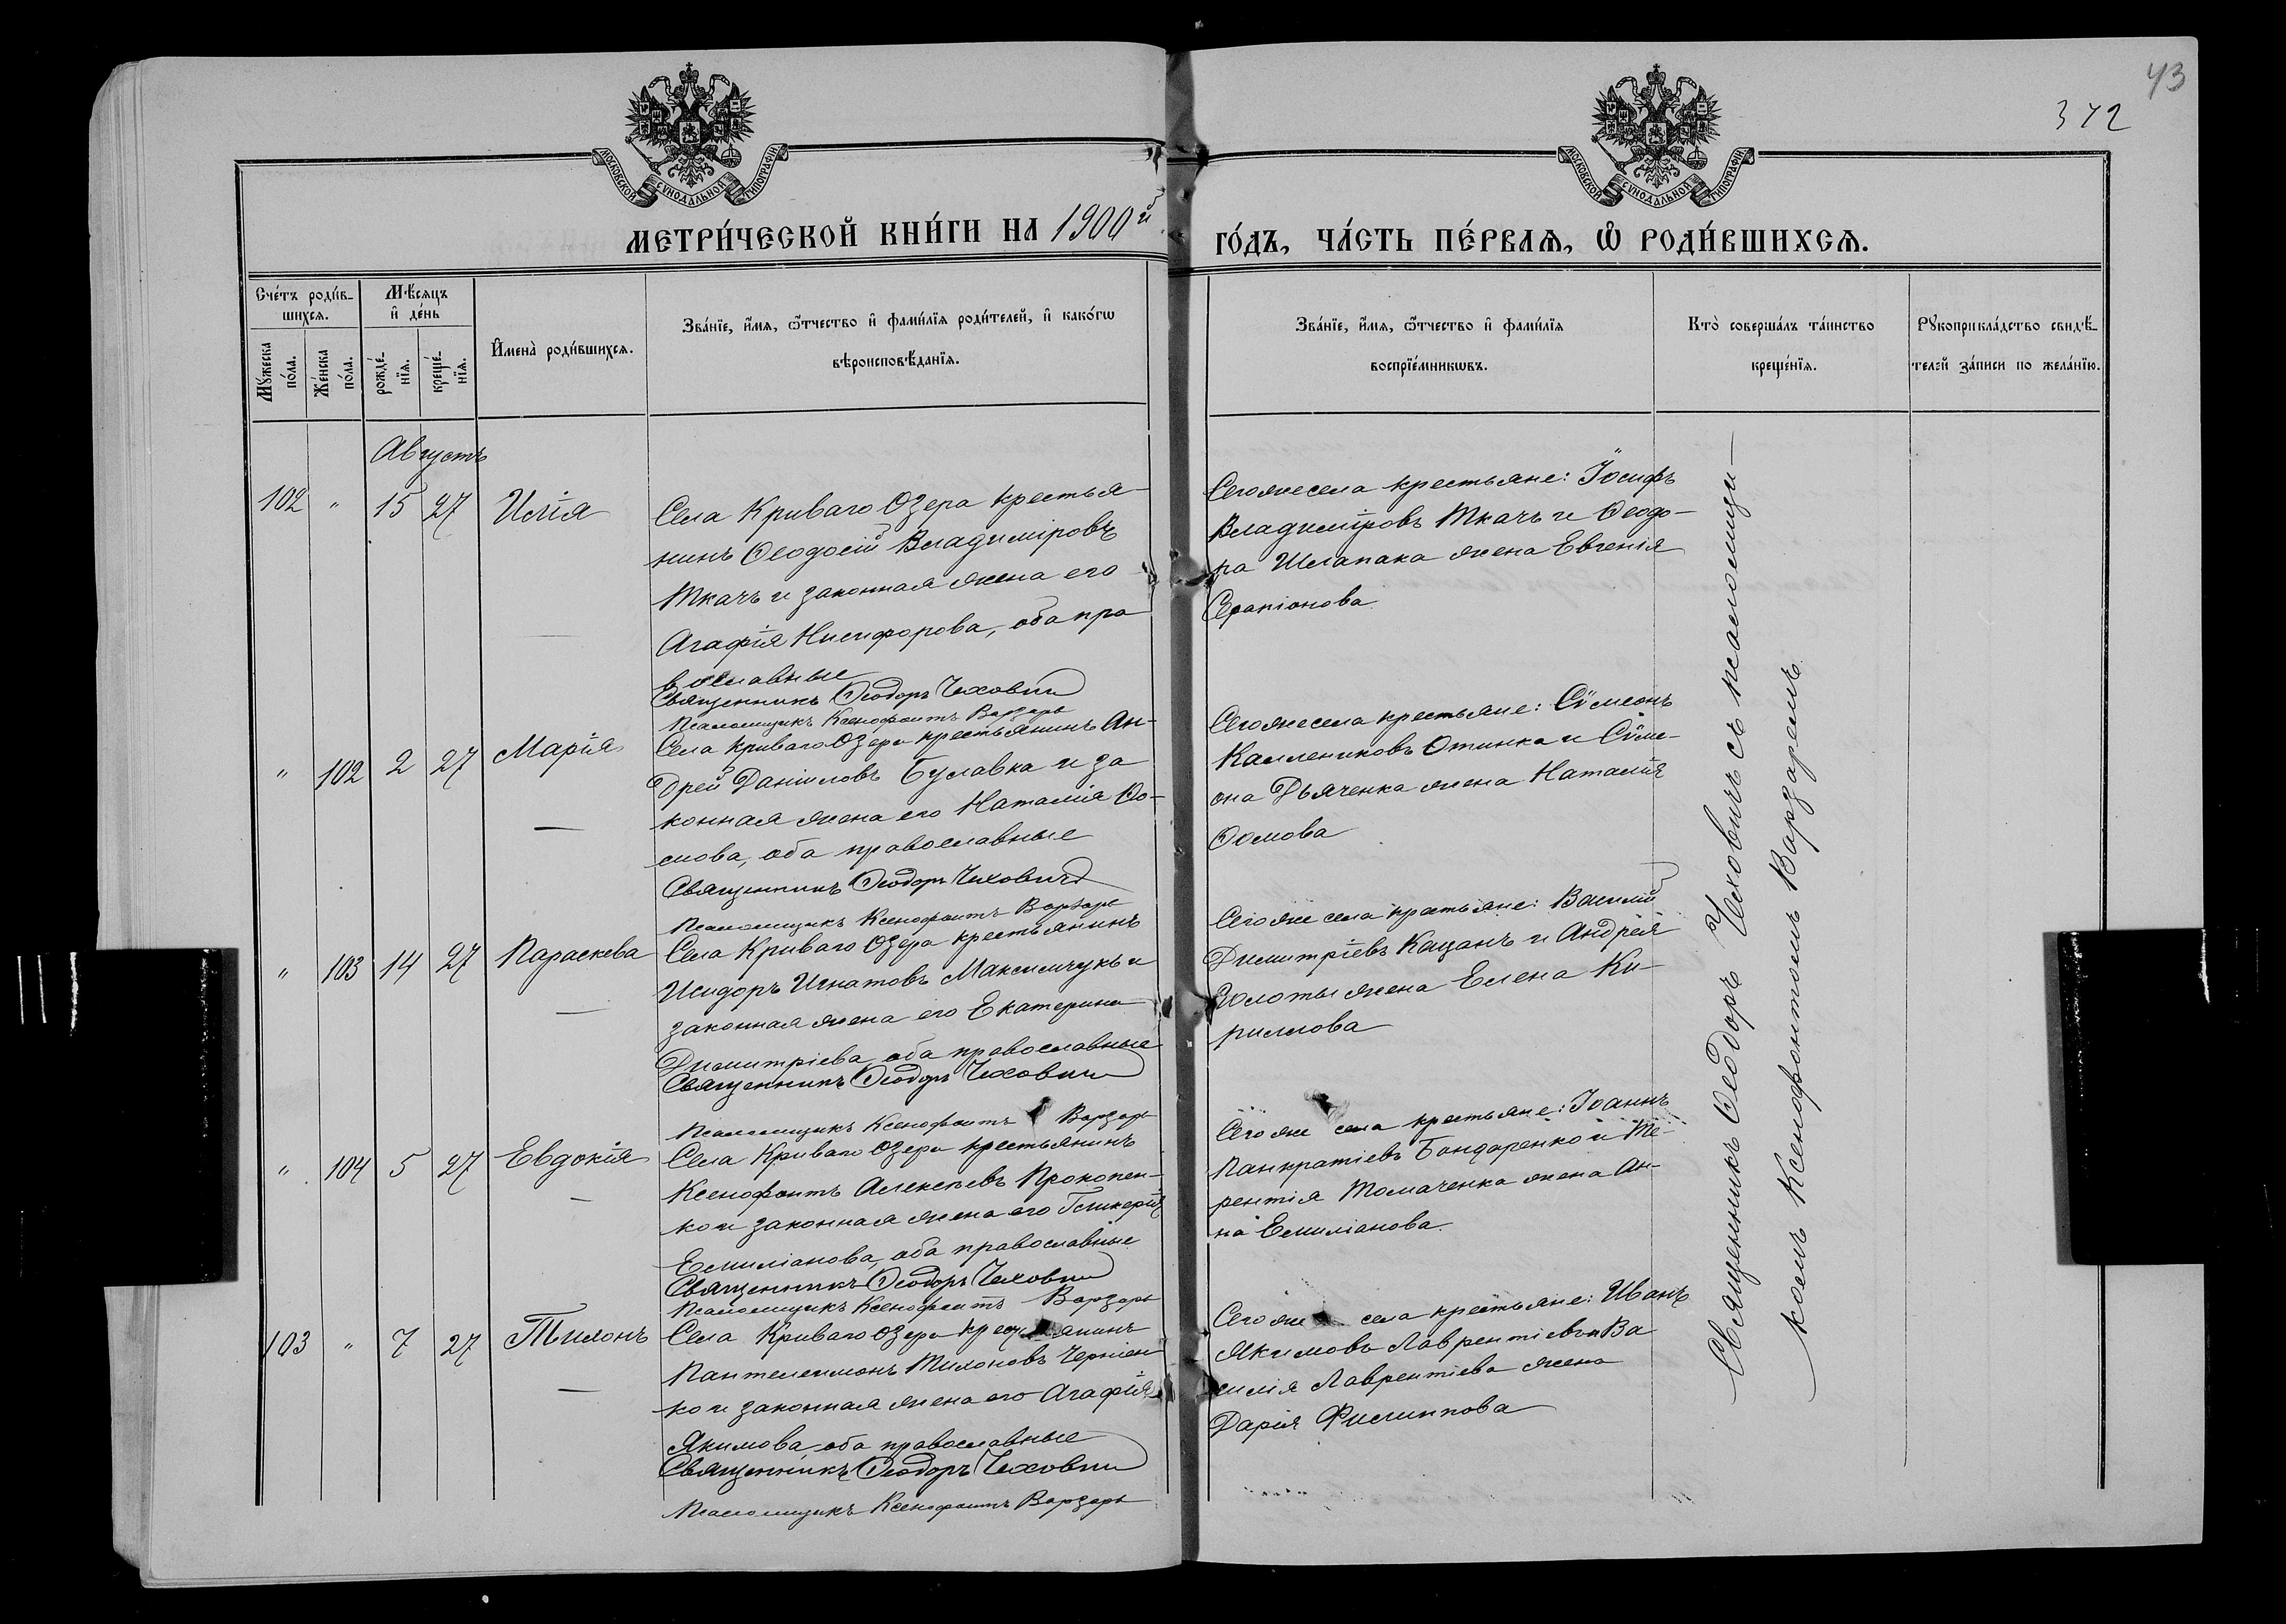 43
372
МОСКОВСКОЙ СѴНОДАЛЬНОЙ ТИПОГРАФІИ
МОСКОВСКОЙ СѴНОДАЛЬНОЙ ТИПОГРАФІИ
МЕТРИ́ЧЕСКОЙ КНИ́ГИ НА 1900й
ГО́ДЪ, ЧА́СТЬ ПЕ́РВАѦ, Ѽ РОДИ́ВШИХСѦ.
Сче́тъ роди́в-
шихсѧ.
Мꙋ́жеска
по́ла.
Же́нска
по́ла.
Мѣ́сѧцъ
и҆ де́нь
рожде́-
нїѧ.
креще́-
нїѧ.
И҆мена̀ роди́вшихсѧ.
Зва́нїе, и҆́мѧ, ѻ҆́тчество и҆ фами́лїѧ роди́телей, и҆ како́гѡ
вѣроисповѣ́данїѧ.
Зва́нїе, и҆́мѧ, ѻ҆́тчество и҆ фами́лїѧ
воспрїе́мникѡвъ.
Кто̀ соверша́лъ та́инство
креще́нїѧ.
Рꙋкоприкла́дство свидѣ́-
телей за́писи по жела́нїю.
Августъ
102 " 15 27 Илія
Села Криваго Озера крестья-
нинъ Ѳеодосій Владиміровъ
Ткачъ и законная жена его
Агафія Никифорова, оба пра
вославные
Священникъ Ѳеодоръ Чеховичъ
Псаломщикъ Ксенофонтъ Варзарь
Сего же села крестьяне: Іосифъ
Владиміровъ Ткачъ и Ѳеодо-
ра Шлапака жена Евгенія
Серапіонова
" 102 2 27 Марія
Села Криваго Озера крестьянинъ Ан-
дрей Даніиловъ Булавка и за
конная жена его Наталія Ѳо-
мова, оба православные
Священникъ Ѳеодоръ Чеховичъ
Псаломщикъ Ксенофонтъ Варзарь
Сего же села крестьяне: Сѵмеонъ
Каллениковъ Отинка и Сѵме-
она Дьяченка жена Наталія
Ѳомова
" 103 14 27 Параскева
Села Криваго Озера крестьянинъ
Исидоръ Игнатовъ Максимчукъ и
законная жена его Екатерина
Димитріева, оба православные
Священникъ Ѳеодоръ Чеховичъ
Псаломщикъ Ксенофонтъ Варзарь
Сего же села крестьяне: Василій
Димитріевъ Кацанъ и Андрея
Золоты жена Елена Ки-
риллова
" 104 5 27 Евдокія
Села Криваго Озера крестьянинъ
Ксенофонтъ Алексѣевъ Прокопен-
ко и законная жена его Гликерія
Емиліанова, оба православные
Священникъ Ѳеодоръ Чеховичъ
Псаломщикъ Ксенофонтъ Варзарь
Сего же села крестьяне: Іоаннъ
Панкратіевъ Бондаренко и Те-
рентія Томаченка жена Ан-
на Емиліанова
103 " 7 27 Тихонъ
Села Криваго Озера крестьянинъ
Пантелеимонъ Тихоновъ Черніен
ко и законная жена его Агафія
Якимова оба православные
Священникъ Ѳеодоръ Чеховичъ
Псаломщикъ Ксенофонтъ Варзарь
Сего же села крестьяне: Иванъ
Якимовъ Лаврентіевъ и Ва
силія Лаврентіева жена
Дарія Филиппова
Священникъ Ѳеодоръ Чеховичъ съ псаломщи-
комъ Ксенофонтомъ Варзаремъ